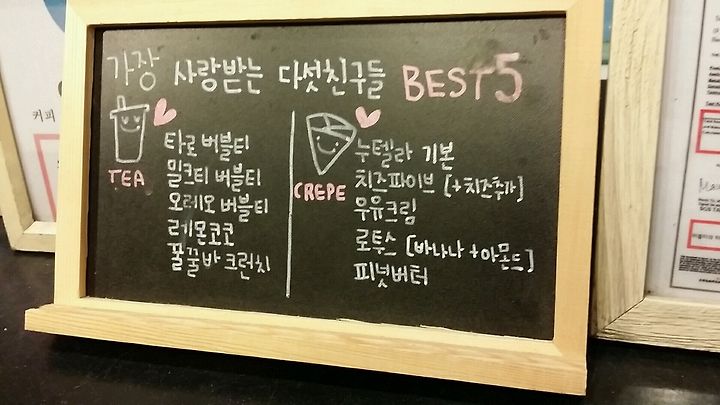 가장 사랑받는 다섯친구들 BEST5
TEA
타로 버블티
밀크티 버블티
오레오 버블티
리키몬코코
꿀꿀바 크런치
CREPE
누텔라 기본
치즈파이브 [+치즈추가]
우유크림
로투스 [바나나+아몬드]
피넛버터
커피